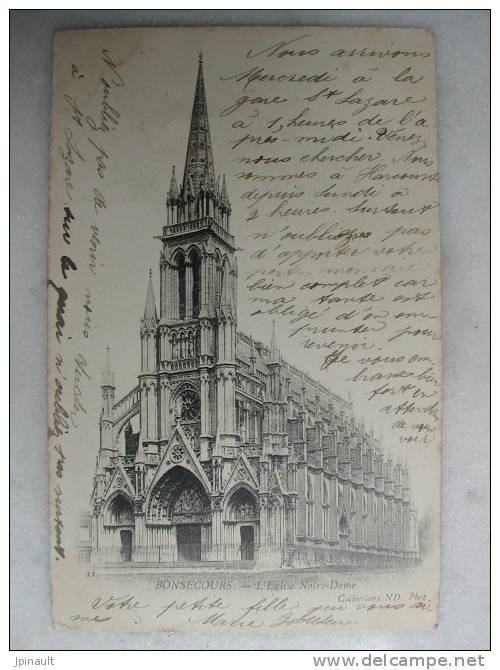 Nous arrivons
Mercredi à la
gare St Lazare
à 1 heures de l'a
près-midi. Venez
nous chercher. Nous
sommes à Harcourt
depuis lundi à
2 heures. Surtout
n'oubliez pas
d'apporter votre
porte-monnaie
bien complet car
ma tante est
obligé d'en em
prunter pour
revenir.
Je vous em
brasse bien
fort en
attendant
de vous
voir
N'oubliez pas de venir nous attendre
à St Lazare sur le quai n'oubliez pas surtout.
21
BONSECOURS. — L'Eglise Notre-Dame
Collections ND Phot.
Votre petite fille qui vous ai
me
Marie
Jpinault
www.delcampe.net